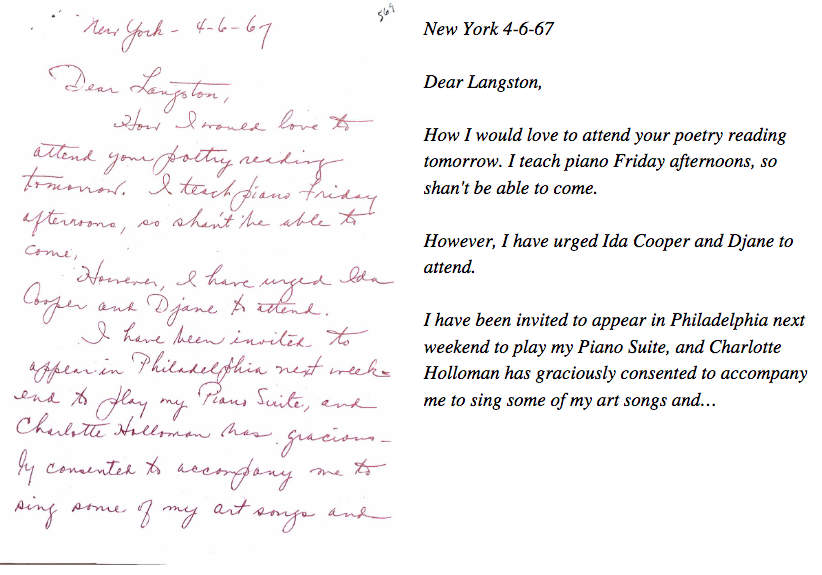 569
New York - 4-6-67
Dear Langston,
How I would love to
attend your poetry reading
tomorrow. I teach piano Friday
afternoons, so shan't be able to
come.
However, I have urged Ida
Cooper and Djane to attend.
I have been invited to
appear in Philadelphia next week-
end to play my Piano Suite, and
Charlotte Holloman has gracious-
ly consented to accompany me to
sing some of my art songs and
New York 4-6-67
Dear Langston,
How I would love to attend your poetry reading
tomorrow. I teach piano Friday afternoons, so
shan't be able to come.
However, I have urged Ida Cooper and Djane to
attend.
I have been invited to appear in Philadelphia next
weekend to play my Piano Suite, and Charlotte
Holloman has graciously consented to accompany
me to sing some of my art songs and…